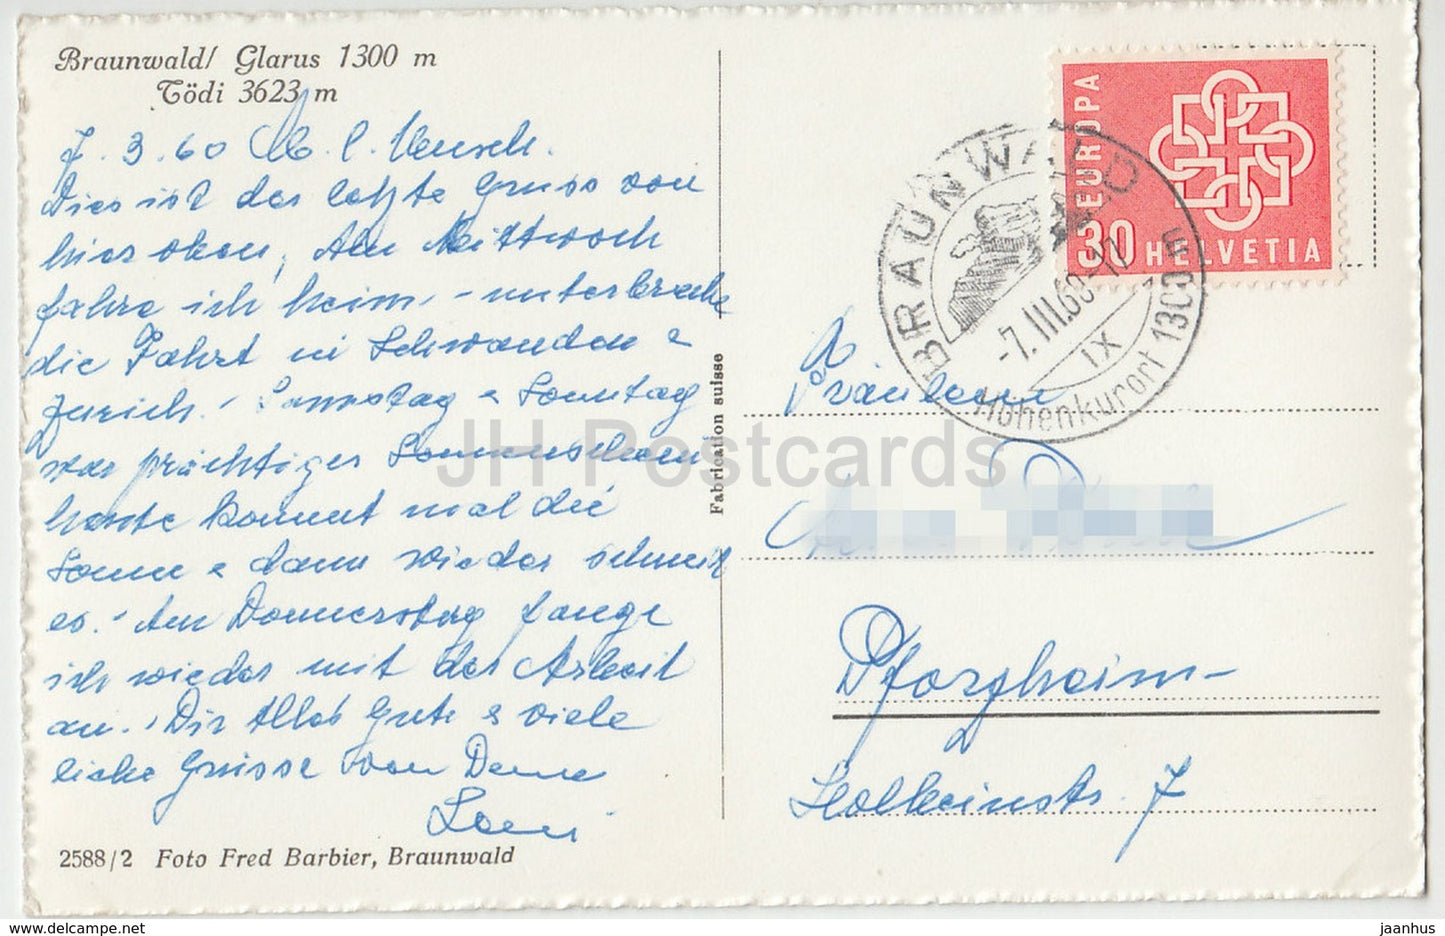 Braunwald/ Glarus 1300 m
Tödi 3623 m
7. 3. 60 M. l. Mensch.
Dies ist der letzte Gruss von
hier oben, Am Mittwoch
fahre ich heim, - unterbreche
die Fahrt in Schwanden &
Zürich. Samstag & Sonntag
war prächtiger Sonnenschein
heute kommt mal die
Sonne & dann wieder schneit
es. Am Donnerstag fange
ich wieder mit der Arbeit
an. Dir Alles Gute & viele
liebe Grüsse von Deine
Loni
2588/2 Foto Fred Barbier, Braunwald
Fabrication suisse
EUROPA
30 HELVETIA
BRAUNWALD
-7.III.60-17
IX
Höhenkurort 1300 m
Fräulein
Pforzheim-
Holbeinstr. 7
JH Postcards
www.delcampe.net
jaanhus